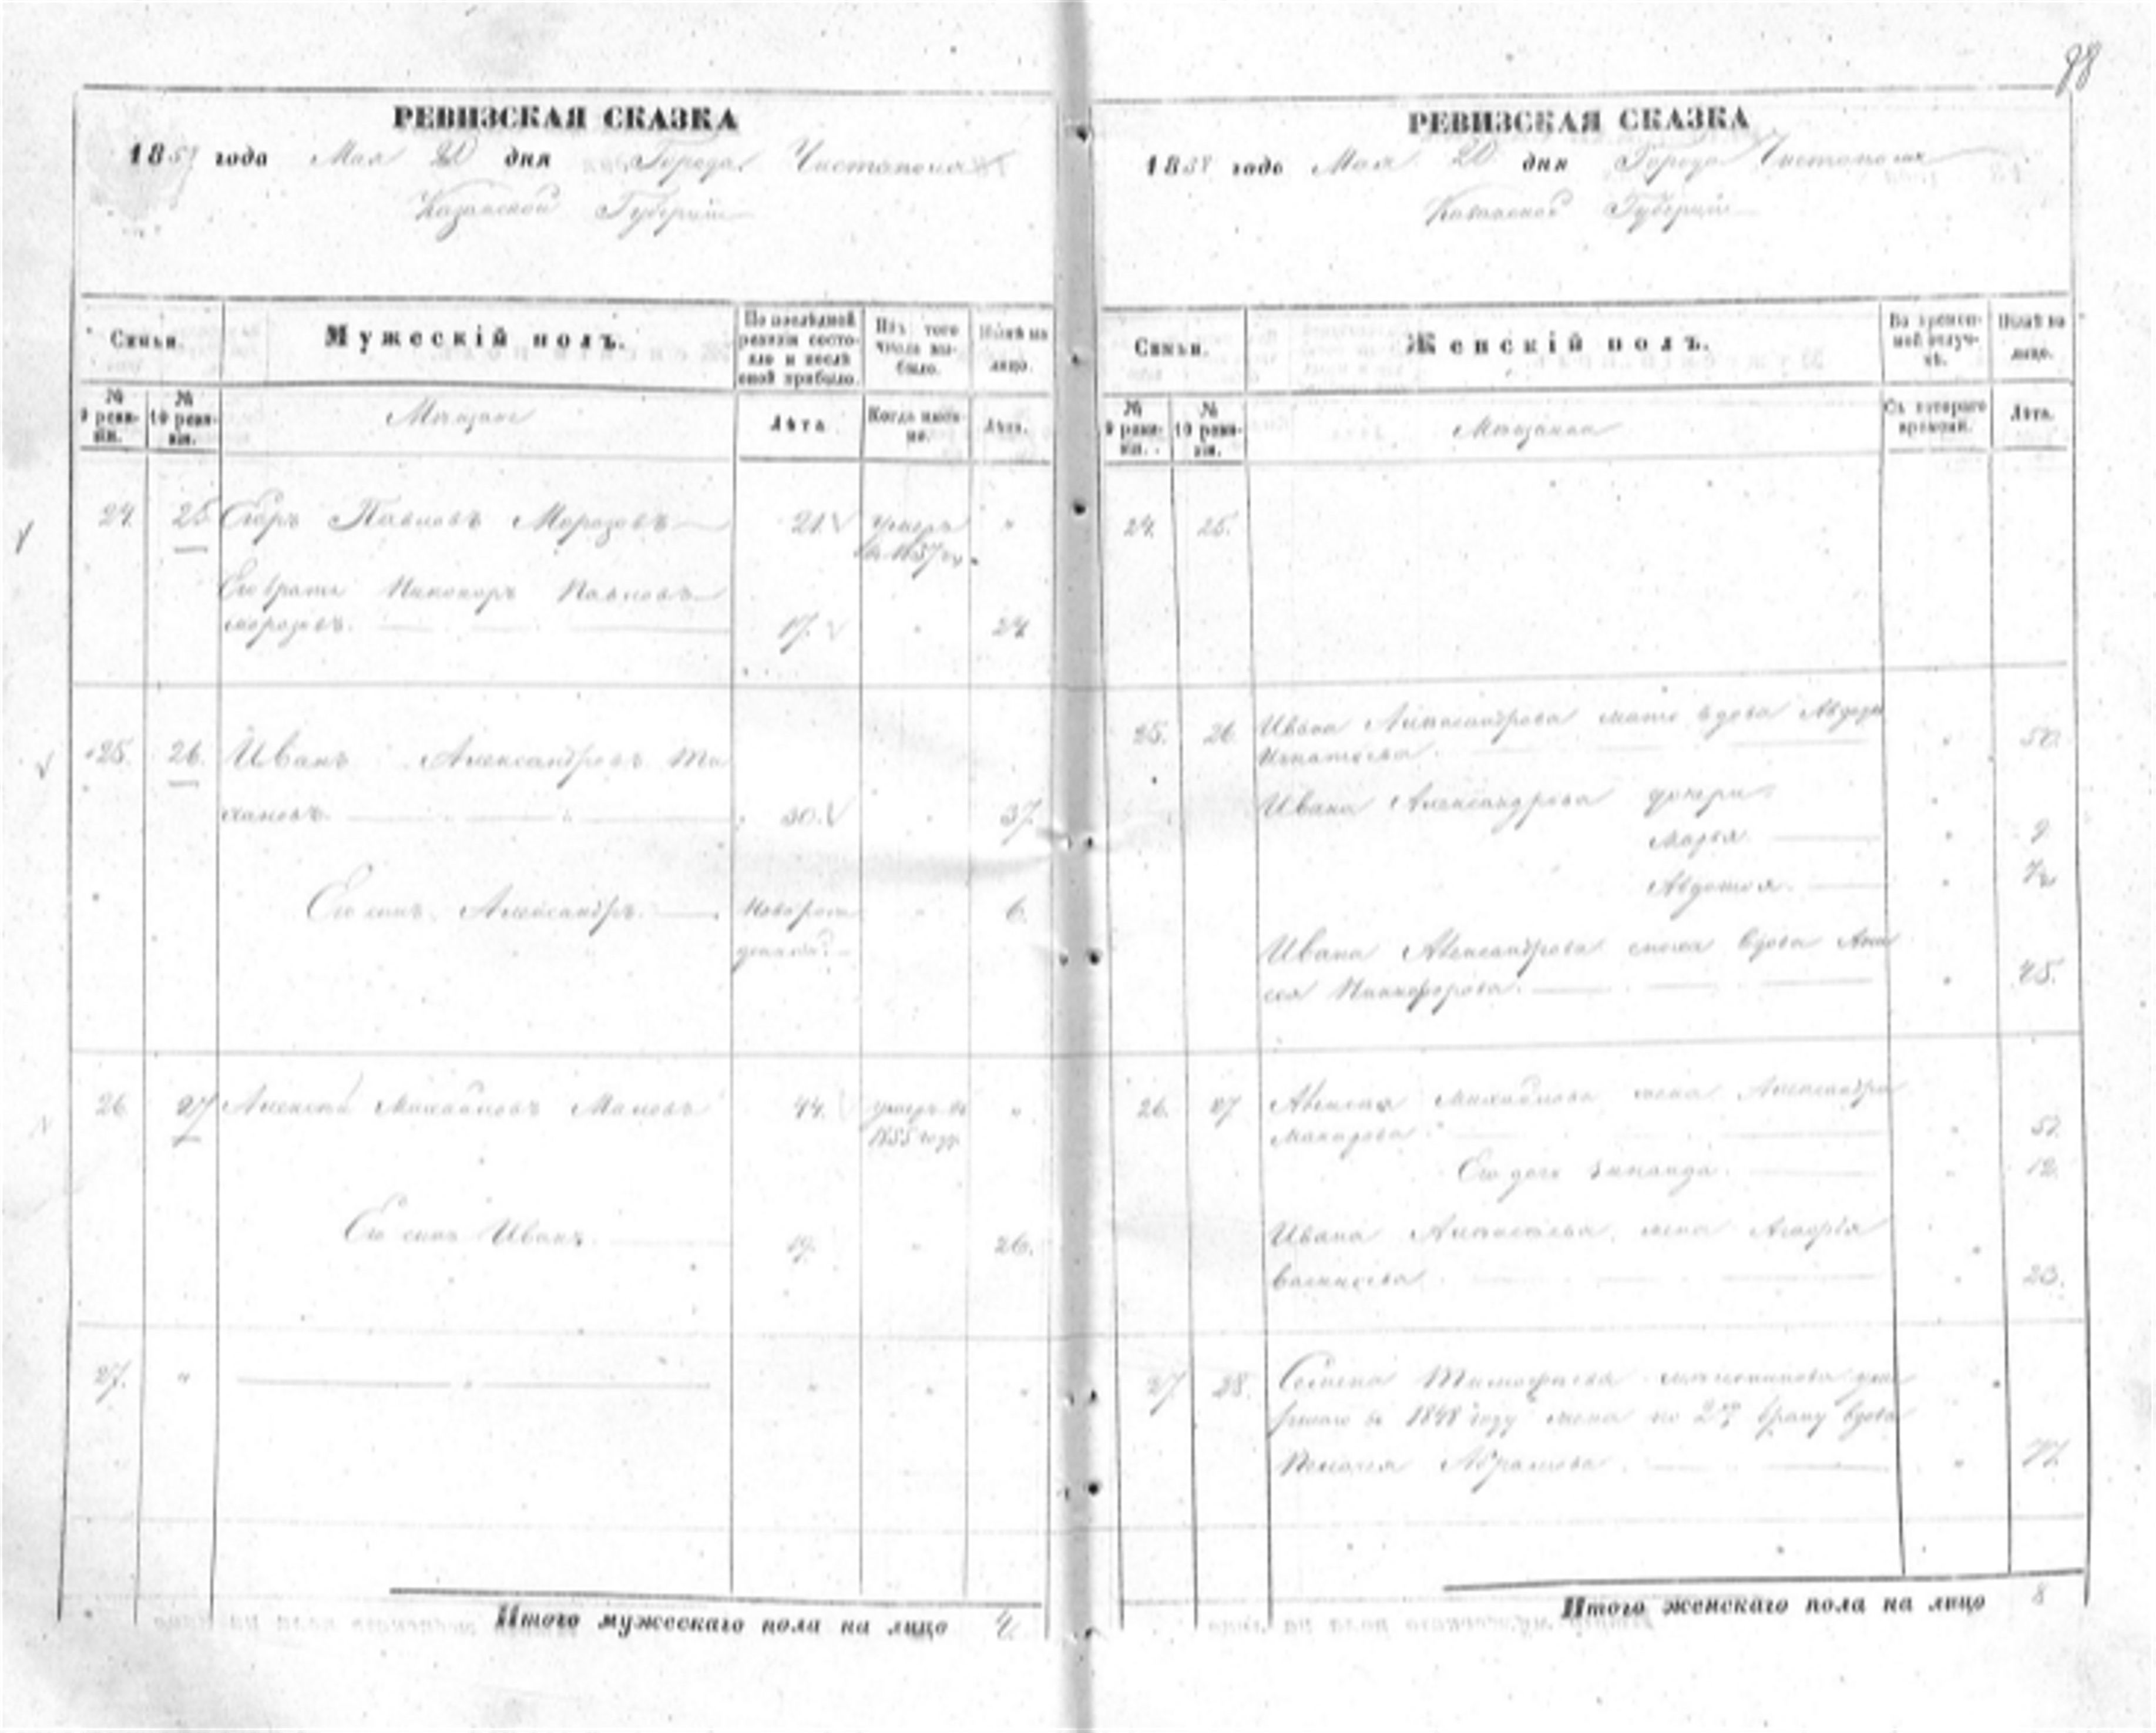 98
РЕВИЗСКАЯ СКАЗКА
1858 года Мая 20 дня Города Чистополя
Казанской Губернии
Семьи.
Мужескій полъ.
По послѣдней ревизіи состояло и послѣ оной прибыло.
Изъ того числа выбыло.
Нынѣ на лицо.
№ 9 ревизіи.
№ 10 ревизіи.
Мещане
Лѣта.
Когда именно.
Лѣта.
24. 25 Егоръ Павловъ Морозовъ 21. умеръ "
въ 1857 г.
Его братъ Никоноръ Павловъ
Морозовъ. 17. " 24
25. 26. Иванъ Александровъ
30. " 37.
Его сынъ Александръ. Новорож " 6.
денный.
26 27 Алексѣй Михайловъ 44. умеръ въ "
1855 году
Его сынъ Иванъ. 19. " 26.
27. " " " " "
Итого мужескаго пола на лицо 4
РЕВИЗСКАЯ СКАЗКА
1858 года Мая 20 дня Города Чистополя
Казанской Губернии
Семьи.
Женскій полъ.
Во временной отлучкѣ.
Нынѣ на лицо.
№ 9 ревизіи.
№ 10 ревизіи.
Мещанки
Съ котораго времени.
Лѣта.
24. 25.
25. 26. Ивана Александрова мать вдова
Игнатьева. "
Ивана Александрова дочери: "
Марья " 9
Авдотья. "
Ивана Александрова сноха вдова Ани
сья Никифорова. " 45.
26. 27 Алексея Михайлова жена Александра
Макарова. "
Его дочь " 12.
Ивана Алексѣева жена
Васильева " 23.
27 28. Семена Тимофеева уме
ршаго въ 1848 году жена по 2му браку вдова
Пелагея Абрамова. " 77.
Итого женскаго пола на лицо 8